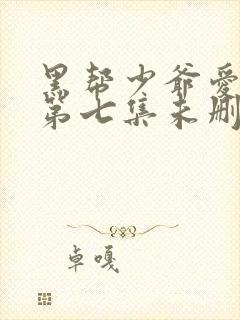 黑帮少爷爱
第七集未删
卓嘎